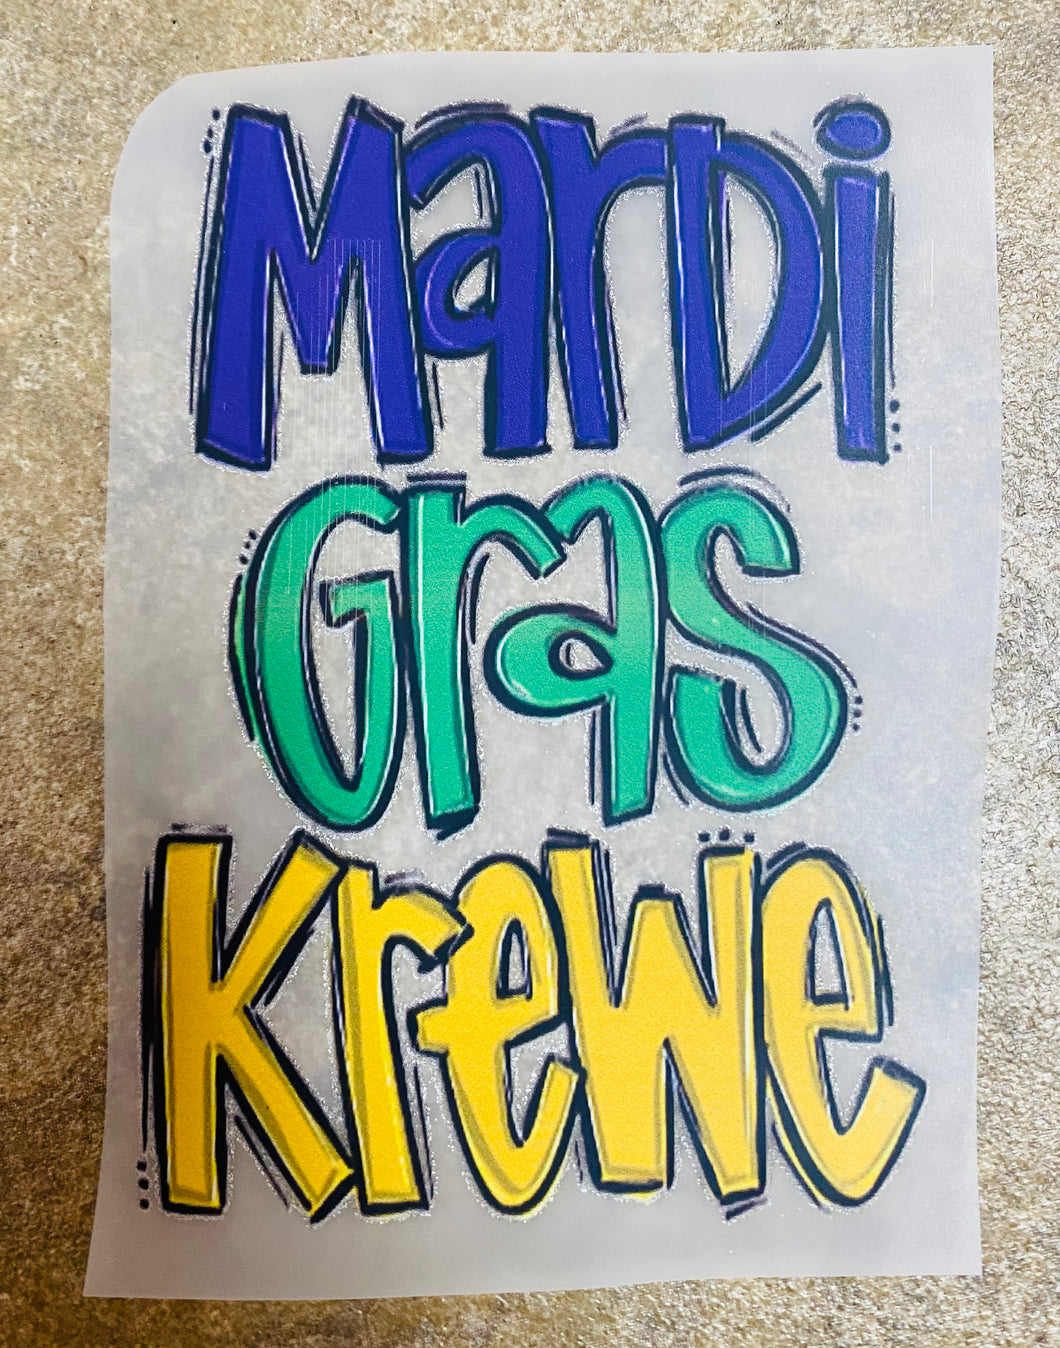 Mardi
Gras
Krewe